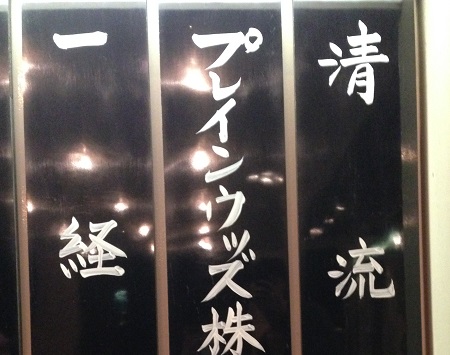 清流
プレインウッズ株
一経